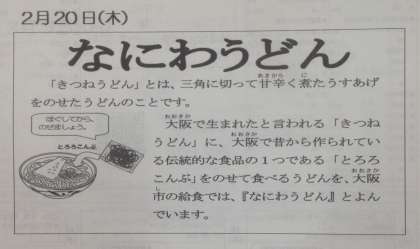 2月20日(木)
なにわうどん
「きつねうどん」とは、三角に切って甘辛く煮たうすあげ
をのせたうどんのことです。
大阪で生まれたと言われる「きつね
うどん」に、大阪で昔から作られてい
る伝統的な食品の1つである「とろろ
こんぶ」をのせて食べるうどんを、大阪
市の給食では、『なにわうどん』とよん
でいます。
ほぐしてから、
のせましょう。
とろろこんぶ